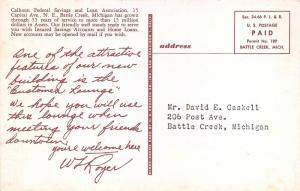 Calhoun Federal Savings and Loan Association, 15
Capital Ave., N. E., Battle Creek, Michigan has grown
through 15 years of service to more than 15 million
dollars today. Our friendly staff stands ready to serve
you with Insured Savings Accounts and Home Loans.
New accounts may be opened by mail if you wish.
One of the attractive
features of our new
building is the
"Customer Lounge"
We hope you will use
this lounge when
meeting your friends
downtown.
you're welcome here
W L Royer
address
Sec. 34.66 P. L. & R.
U. S. POSTAGE
PAID
Permit No. 189
BATTLE CREEK, MICH.
Mr. David E. Gaskell
206 Post Ave.
Battle Creek, Michigan